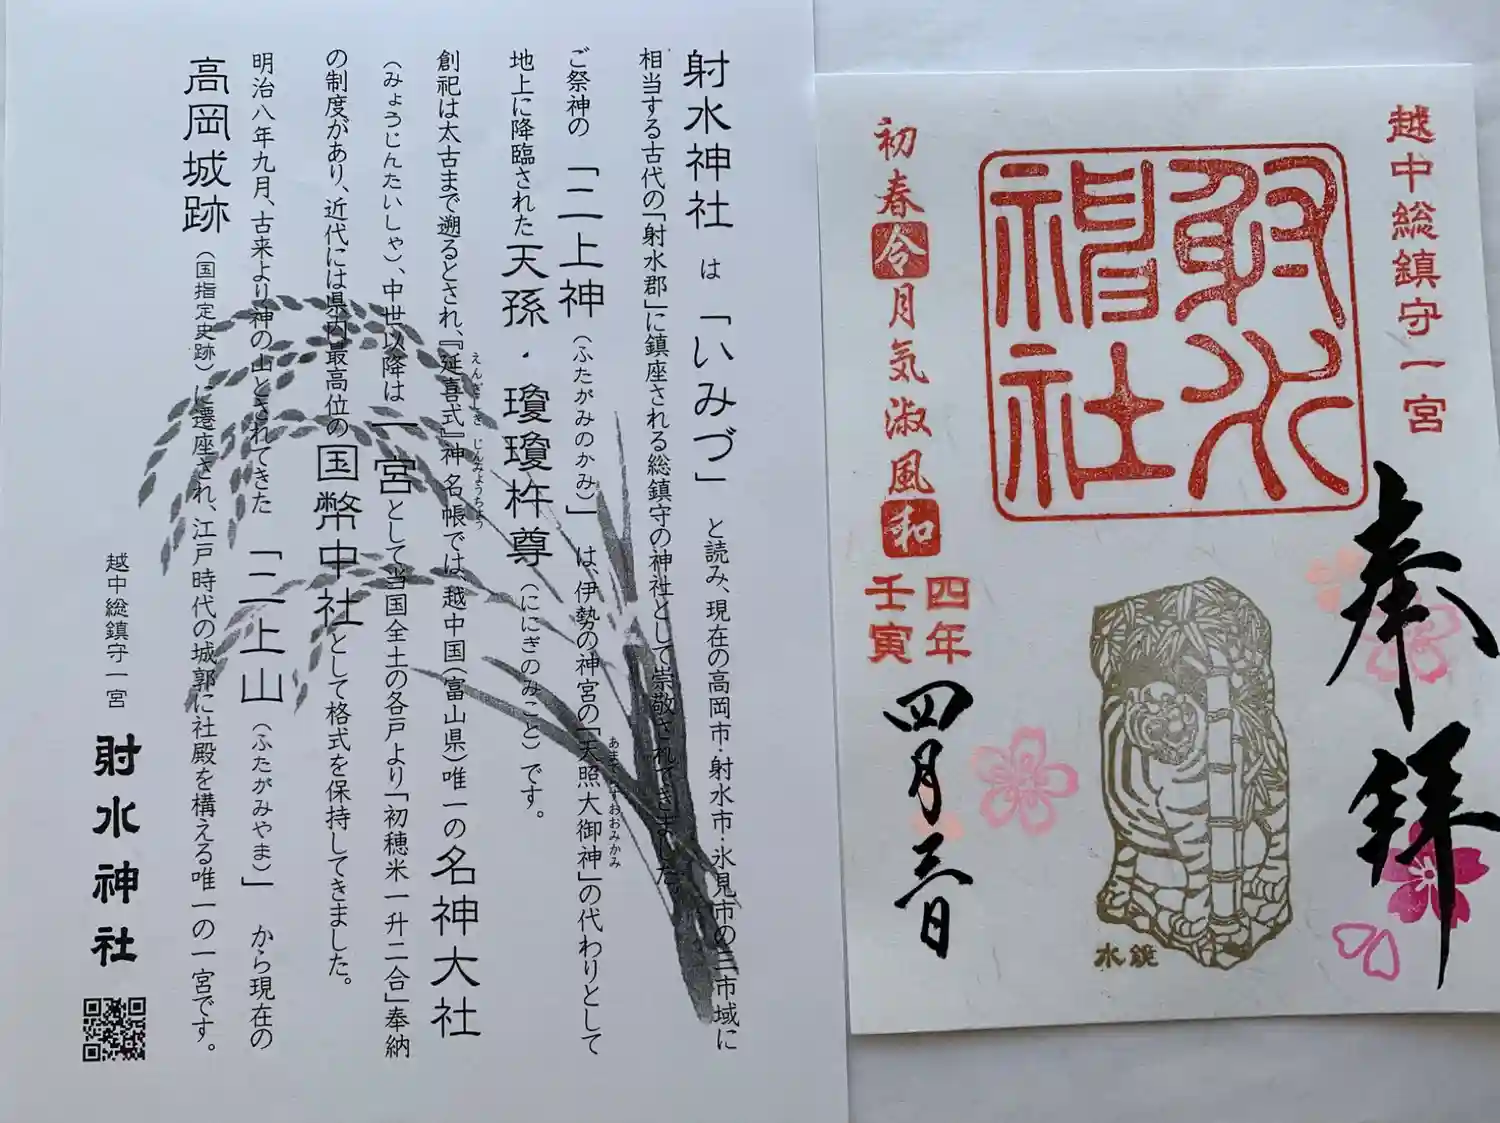 射水神社は「いみづ」と読み、現在の高岡市・射水市・氷見市の三市域に
相当する古代の「射水郡」に鎮座される総鎮守の神社として崇敬されてきました。
ご祭神の「二上神（ふたがみのかみ）」は、伊勢の神宮の「天照大御神」の代わりとして
あまてらすおおみかみ
地上に降臨された天孫・瓊瓊杵尊（ににぎのみこと）です。
創祀は太古まで遡るとされ、『延喜式』神名帳では、越中国（富山県）唯一の名神大社
えんぎしき じんみょうちょう
（みょうじんたいしゃ）、中世以降は一宮として当国全土の各戸より「初穂米一升二合」奉納
の制度があり、近代には県内最高位の国幣中社として格式を保持してきました。
明治八年九月、古来より神の山とされてきた「二上山（ふたがみやま）」から現在の
高岡城跡（国指定史跡）に遷座され、江戸時代の城郭に社殿を構える唯一の一宮です。
越中総鎮守一宮 射水神社
越中総鎮守一宮
奉拝
射水
神社
水鏡
初春令月気淑風和
四年
壬寅
四月三日